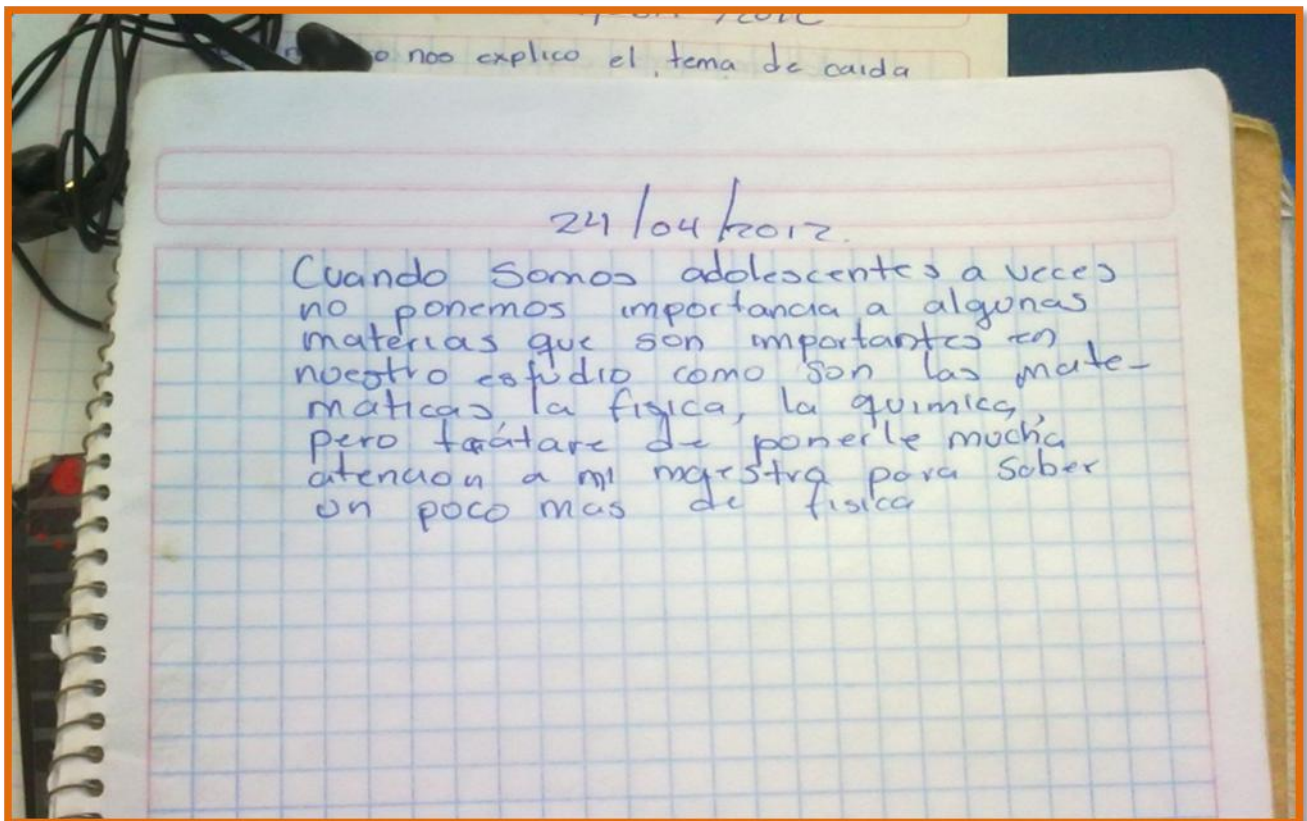 o nos explico el tema de caida
24/04/2012.
Cuando somos adolescentes a veces
no ponemos importancia a algunas
materias que son importantes en
nuestro estudio como son las mate-
maticas la fisica, la quimica,
pero tratare de ponerle mucha
atencion a mi maestra para saber
un poco mas de fisica